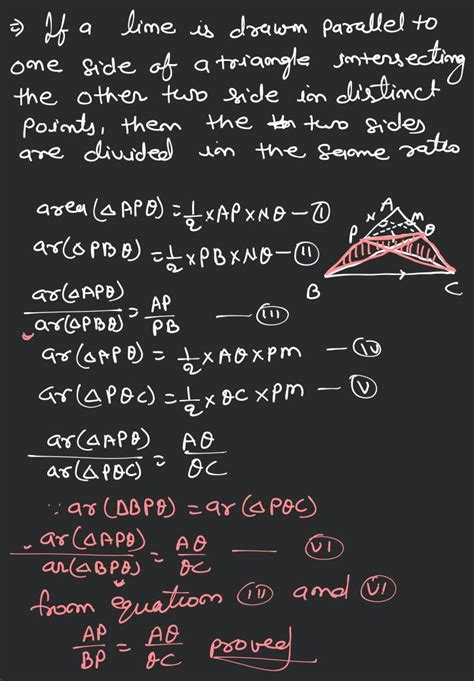 ⇒ If a line is drawn parallel to
one side of a triangle intersecting
the other two side in distinct
points, then the two sides
are divided in the same ratio
area(△APQ) = 1/2 × AP × NQ — (I)
ar(△PBQ) = 1/2 × PB × NQ — (II)
ar(△APQ)/ar(△PBQ) = AP/PB — (III)
ar(△APQ) = 1/2 × AQ × PM — (IV)
ar(△PQC) = 1/2 × QC × PM — (V)
ar(△APQ)/ar(△PQC) = AQ/QC
∵ ar(△BPQ) = ar(△PQC)
ar(△APQ)/ar(△BPQ) = AQ/QC — (VI)
from equation (III) and (VI)
AP/BP = AQ/QC proved
A
N M
P Q
B C